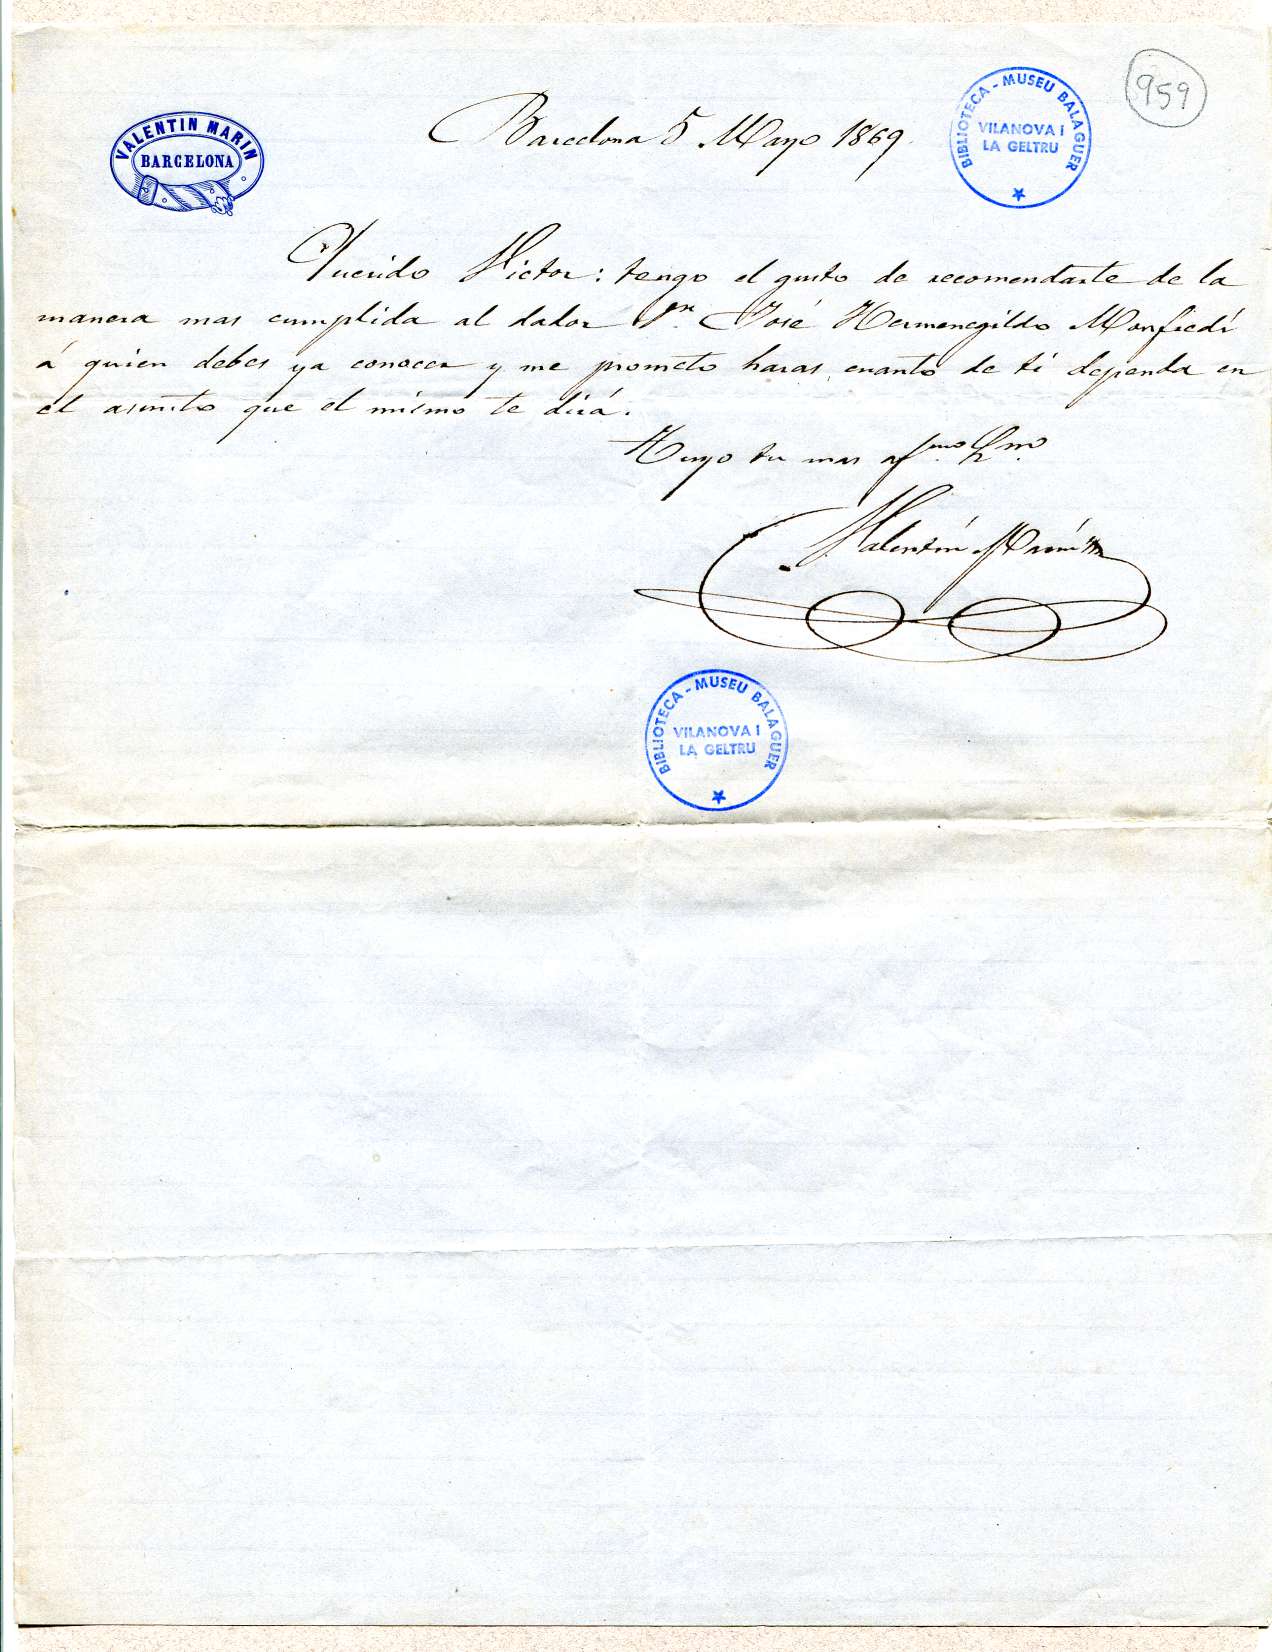 959
VALENTIN MARIN
BARCELONA
Barcelona 5 Mayo 1869.
BIBLIOTECA - MUSEU BALAGUER
VILANOVA I
LA GELTRU
Querido Victor: tengo el gusto de recomendarte de la
manera mas cumplida al dador Sr. José Hermenegildo Monfredi
á quien debes ya conocer y me prometo haras cuanto de ti dependa en
el asunto que el mismo te dirá.
Tuyo tu mas afmo. Hmo.
Valentín Marín
BIBLIOTECA - MUSEU BALAGUER
VILANOVA I
LA GELTRU